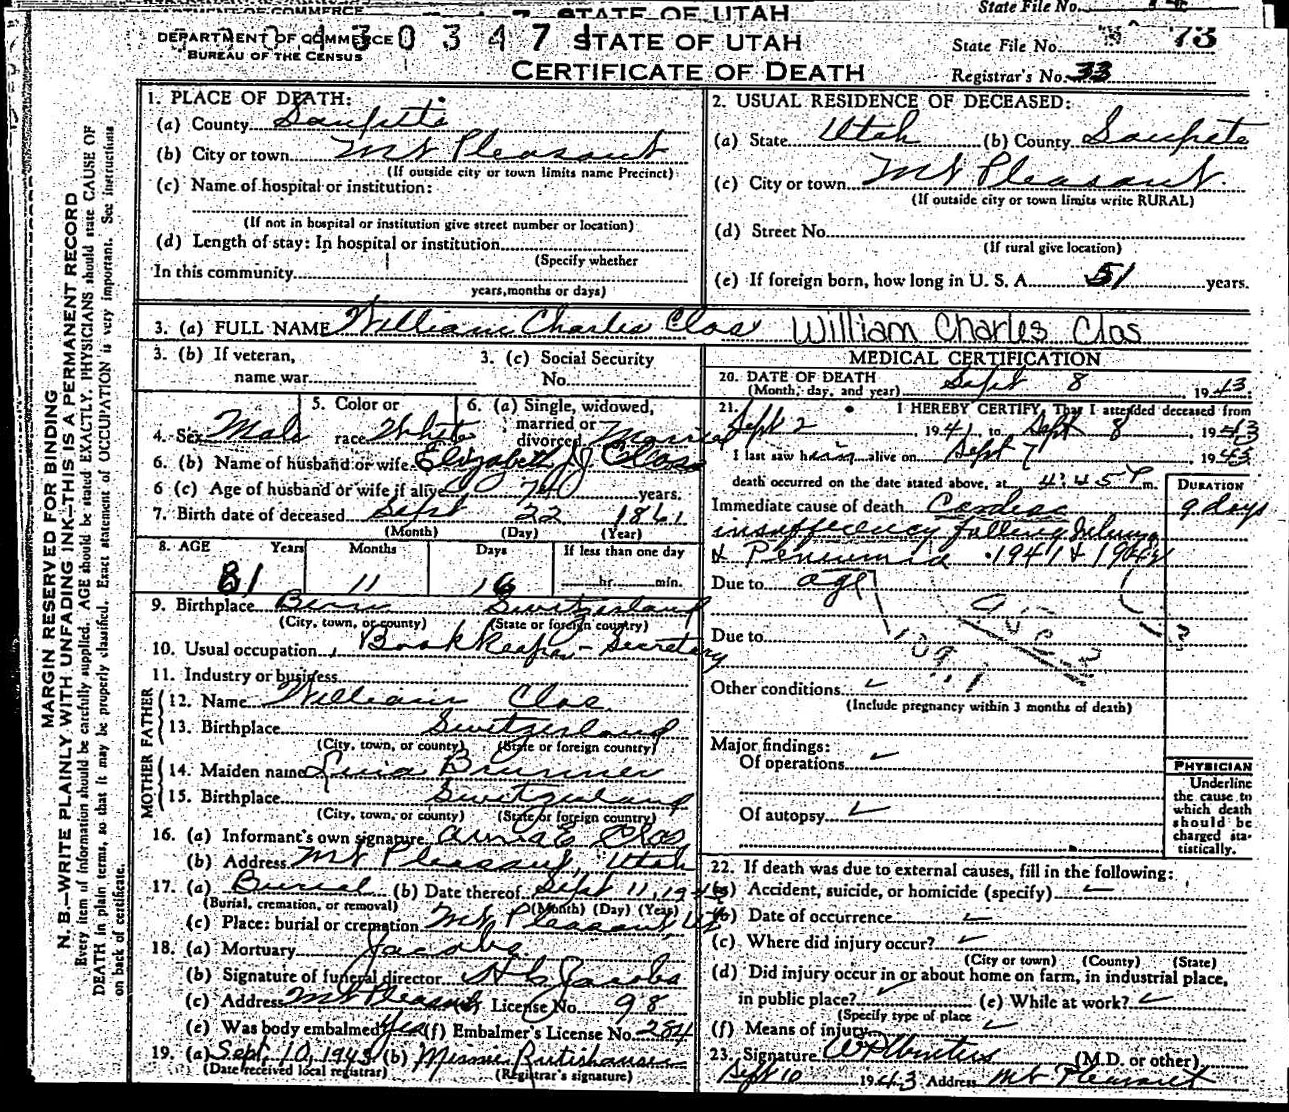 STATE OF UTAH
State File No.
DEPARTMENT OF COMMERCE
BUREAU OF THE CENSUS
STATE OF UTAH
CERTIFICATE OF DEATH
State File No. 73
Registrar's No. 33
MARGIN RESERVED FOR BINDING
N. B.—WRITE PLAINLY WITH UNFADING INK—THIS IS A PERMANENT RECORD
Every item of information should be carefully supplied. AGE should be stated EXACTLY. PHYSICIANS should state CAUSE OF
DEATH in plain terms, so that it may be properly classified. Exact statement of OCCUPATION is very important. See instructions
on back of certificate.
1. PLACE OF DEATH:
(a) County Sanpete
(b) City or town Mt Pleasant
(If outside city or town limits name Precinct)
(c) Name of hospital or institution:
(If not in hospital or institution give street number or location)
(d) Length of stay: In hospital or institution
(Specify whether
In this community
years, months or days)
2. USUAL RESIDENCE OF DECEASED:
(a) State Utah (b) County Sanpete
(c) City or town Mt Pleasant
(If outside city or town limits write RURAL)
(d) Street No.
(If rural give location)
(e) If foreign born, how long in U. S. A. 51 years.
3. (a) FULL NAME William Charles Clos William Charles Clos
3. (b) If veteran, name war
3. (c) Social Security No.
4. Sex Male
5. Color or race White
6. (a) Single, widowed, married or divorced Married
6. (b) Name of husband or wife Elizabeth J Clos
6 (c) Age of husband or wife if alive 74 years.
7. Birth date of deceased Sept 22 1861
(Month) (Day) (Year)
8. AGE Years Months Days If less than one day
81 11 16 hr. min.
9. Birthplace Bern Switzerland
(City, town, or county) (State or foreign country)
10. Usual occupation Bookkeeper - Secretary
11. Industry or business
FATHER
12. Name William Clos
13. Birthplace Switzerland
(City, town, or county) (State or foreign country)
MOTHER
14. Maiden name Brunner
15. Birthplace Switzerland
(City, town, or county) (State or foreign country)
16. (a) Informant's own signature Clos
(b) Address Mt Pleasant, Utah
17. (a) Burial (b) Date thereof Sept 11, 1943
(Burial, cremation, or removal) (Month) (Day) (Year)
(c) Place: burial or cremation Mt Pleasant, Ut
18. (a) Mortuary Jacobs
(b) Signature of funeral director Jacobs
(c) Address Mt Pleasant License No. 98
(e) Was body embalmed? Yes (f) Embalmer's License No. 284
19. (a) Sept. 10, 1943 (b)
(Date received local registrar) (Registrar's signature)
MEDICAL CERTIFICATION
20. DATE OF DEATH
(Month, day, and year) Sept 8 1943
21. I HEREBY CERTIFY, That I attended deceased from
Sept 2 1941, to Sept 8, 1943
I last saw him alive on Sept 7 1943
death occurred on the date stated above, at 4:45 P m.
DURATION
Immediate cause of death Cardiac 9 days
1941 & 1942
Due to age
Due to
Other conditions
(Include pregnancy within 3 months of death)
Major findings:
Of operations
Of autopsy
PHYSICIAN
Underline
the cause to
which death
should be
charged sta-
tistically.
22. If death was due to external causes, fill in the following:
(a) Accident, suicide, or homicide (specify)
(b) Date of occurrence
(c) Where did injury occur?
(City or town) (County) (State)
(d) Did injury occur in or about home on farm, in industrial place,
in public place? (e) While at work?
(Specify type of place
(f) Means of injury
23. Signature (M.D. or other)
Sept 10 1943 Address Mt Pleasant